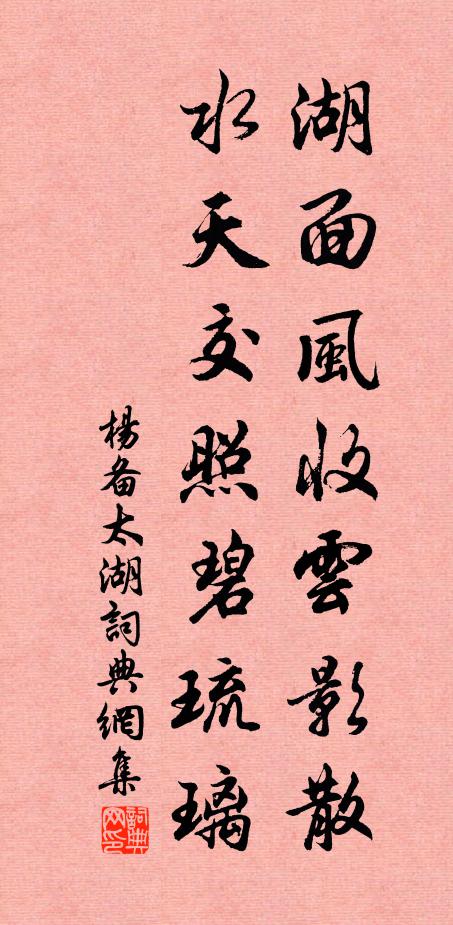 湖面風收雲影散
水天交照碧琉璃
楊备太湖詞典網集
詞典网印